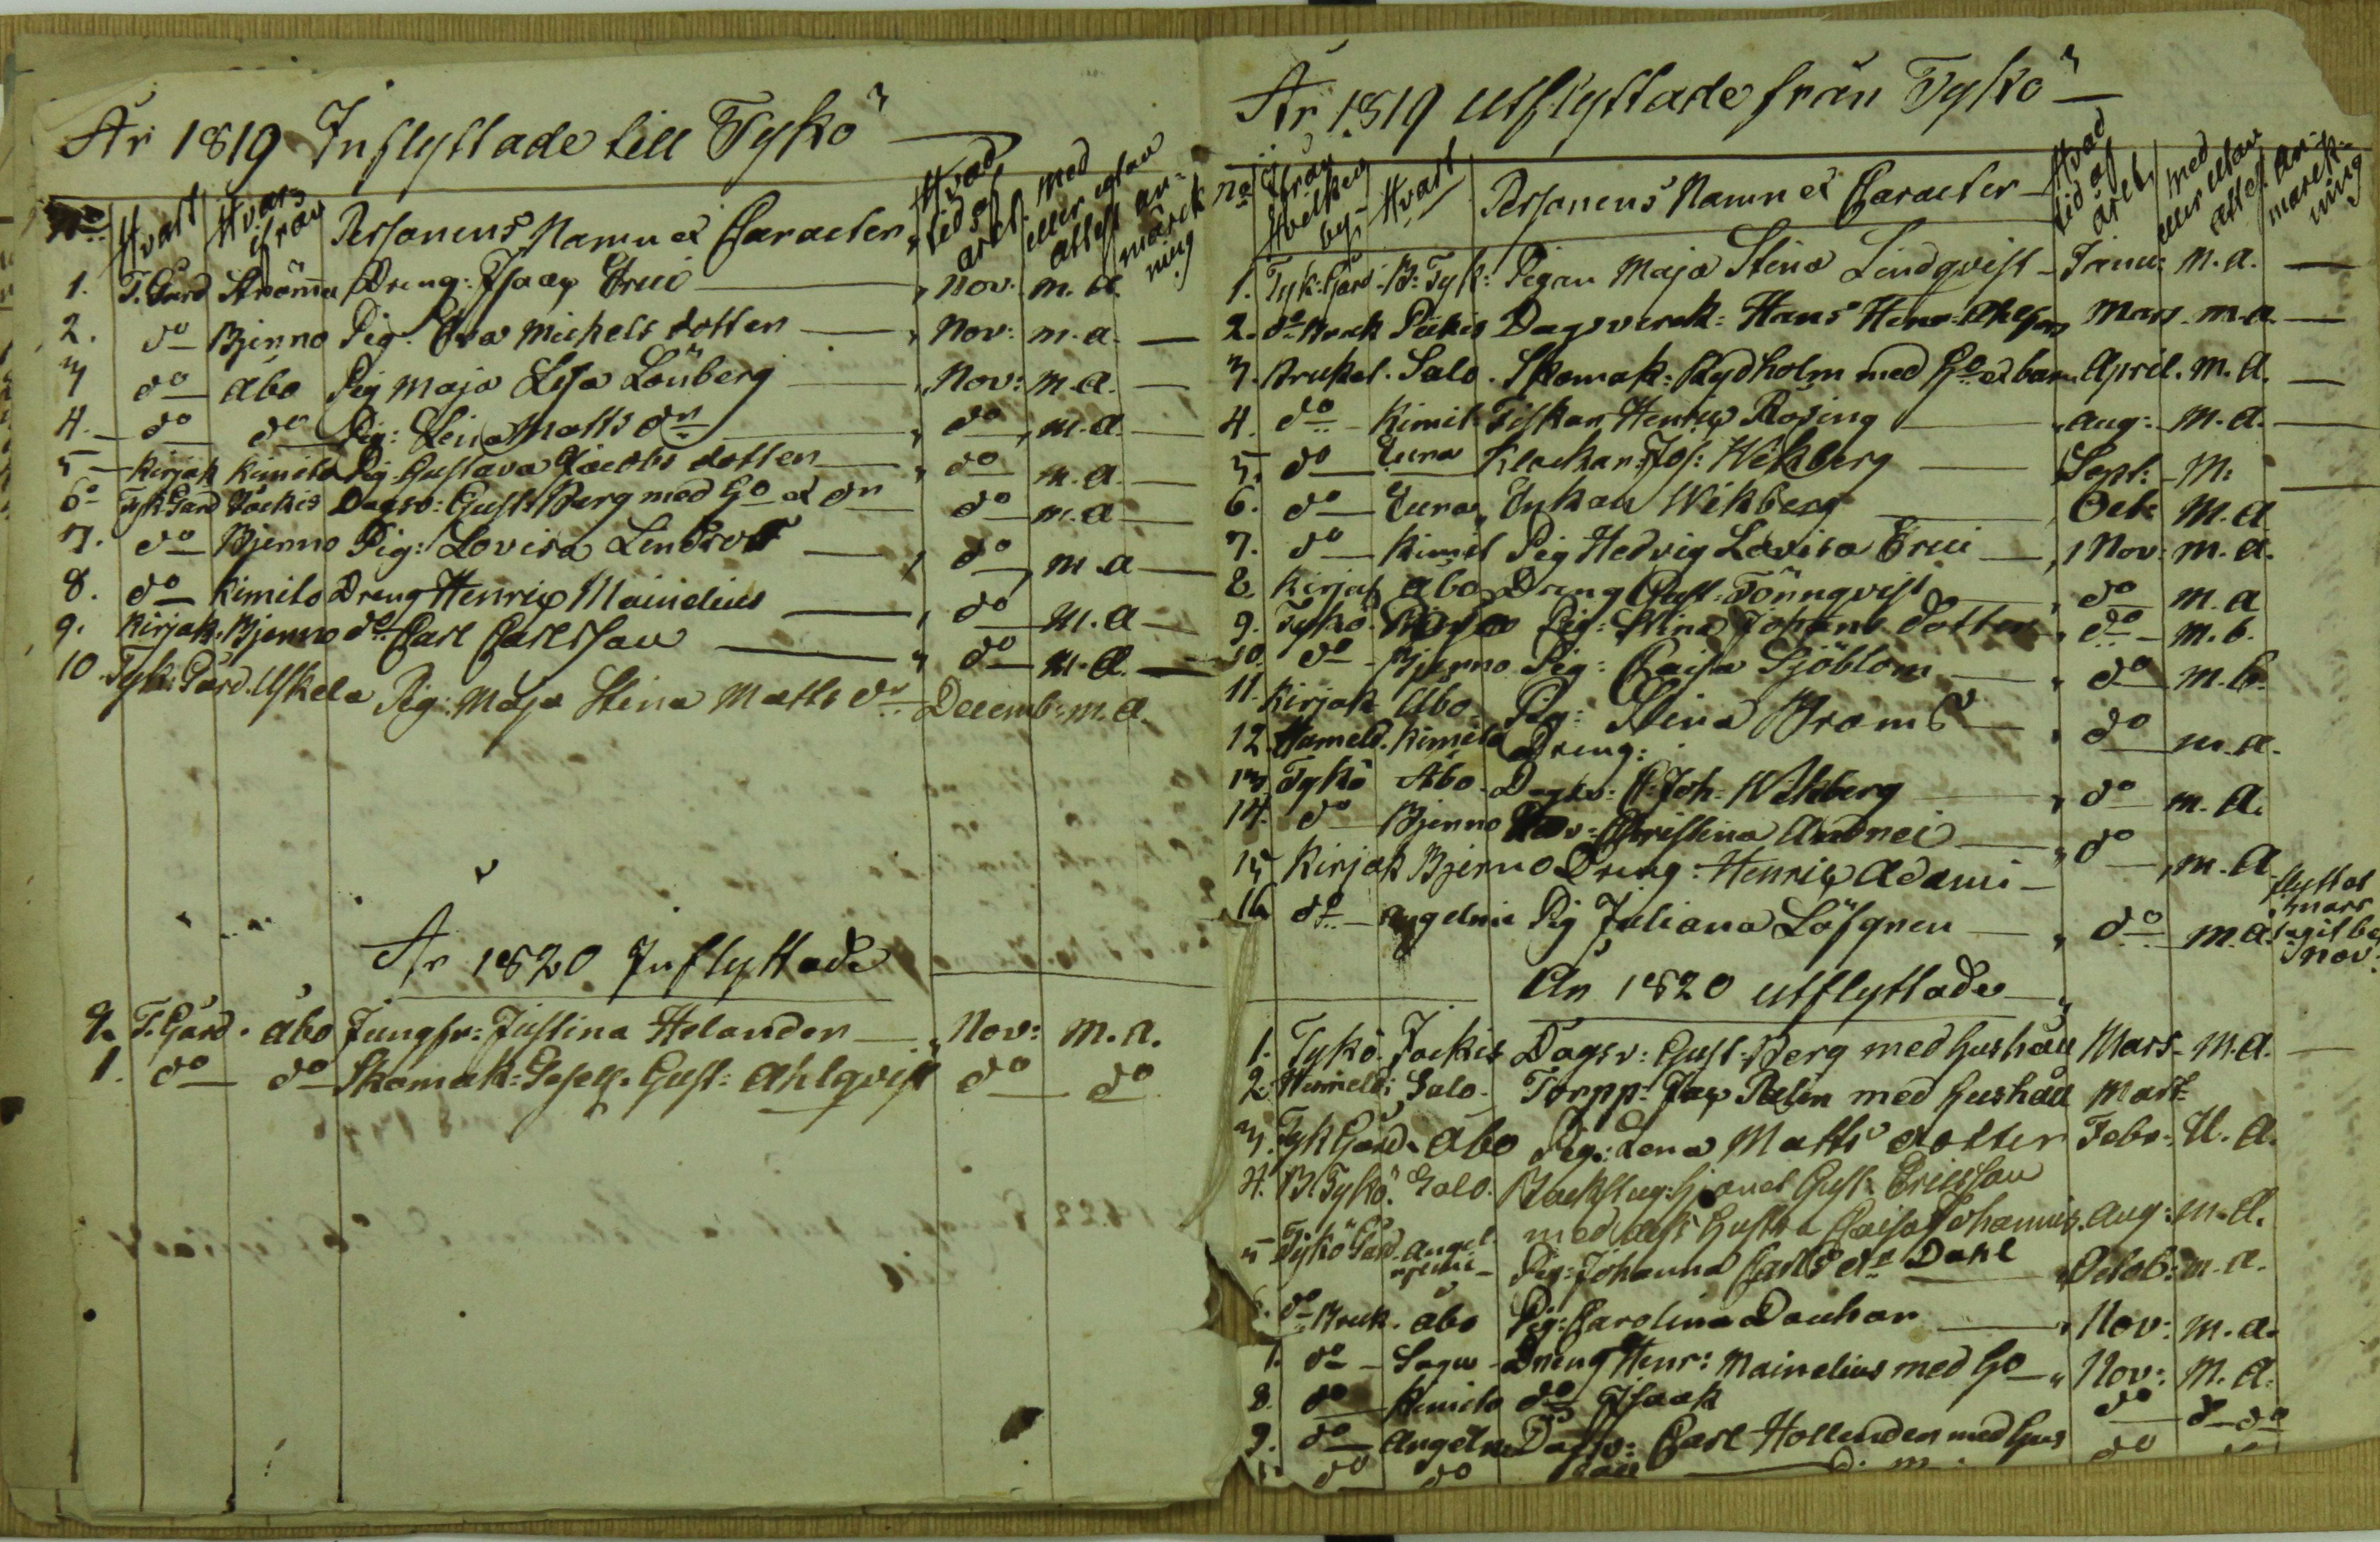 År 1819 Inflyttade till Tykö
No Hvart Hvars ifrån Personens Namn et Caracter Hvad tid af året med eller utan attest anmärckning
1. T. Gård Strömma Dreng: Isaac Erici Nov: m. a.
2. do Bjerno Pig. Eva Michels dotter Nov: m. a.
3 do Åbo Pig Maja Lisa Lönberg Nov: m. a.
4. do do Pig: Lena Matts dr do m. a.
5 Kirjak Kimito Pig Gustava Jacobs dotter do m. a.
6 Tyk. Gård Jockis Dagsv: Gust. Berg med Ho et dr do m. a
7. do Bjerno Pig: Lovisa do m. a
8. do Kimito Dreng Henric Mainelius do m. a
9. Kirjak. Bjerno do Carl Carlsson do m. a.
10 Tyk. Gård. Uskela Pig. Maja Stina Matts dr Decemb: m. a.
År 1820 Inflyttade
T. Gård. Åbo Jungfr: Justina Helander Nov: m. a.
1. do do Skomak: Gesell. Gust: Ahlqvist do do
År 1819 Utflyttade från Tykö
No ifrån Hvilken by Hvart Personens Namn et Caracter Hvad tid af året med eller utan attest anmärckning
1. Tyk. Gård. B: Tyk: Pigan Maja Stina Lindqvist Janu: m. a.
2. do Bruk Pikis Dagsverck: Hans Henr: Mars m. a.
3. Bruket. Salo. Skomak: Rydholm med Ho et barn April. m. a.
4. do Kimit Fiskar Henric Rosing Aug: m. a.
5. do Eura Klockar: Jos: Wikberg Sept: m:
6. do Eura Enkan Wikberg Oct: m. a
7. do Kimit Pig Hedvig Lovisa Erici Nov: m. a.
8. Kirjak Åbo Dreng Gust. Törnqvist do m. a
9. Tykö Pig: Stina Johans dotter do m. b.
10. do Bjerno Pig: Caisa Sjöblom do m. b.
11. Kirjak Åbo Pig: Stina Broms do m. a.
12. Hameld. Kimito Dreng:
13 Tykö Åbo. Dagsv: C. Joh. Wikberg do m. a.
14. do Bjerno Christina Andrei do m. a
15 Kirjak Bjerno Dreng: Henric Adami
16 do Angelnie Pig Juliana Löfgren do m. a. flyttat mars nov.
År 1820 Utflyttade
1. Tykö. Jockis Dagsv: Gust. Berg med hushåll Mars. m. a.
2. Hameld: Salo. Torpp: Palin med hushåll Mart
3. Tyk Gård. Åbo Pig: Lena Matts dotter Febr: U. a.
4. B. Tykö. Salo. Backstug: hjonet Gust. Ericsson
med dess hustru Caisa Johannis. Aug: m. a.
5 Tykö Gård. Angelniemi Pig: Johanna Carls dr Dahl Octob: m. a.
6. do Bruk. Åbo Pig: Carolina Nov: m. a.
7. do Sagu Dreng Henr: Mainelius med Ho Nov: m. a.
8. do Kimito do Isaak do do
9. do Angeln Dagsv: Carl Hollender med hus do do
do do do